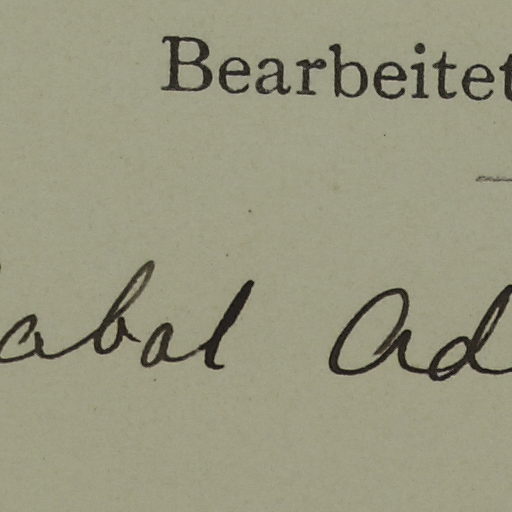 Bearbeitet
abal Ad